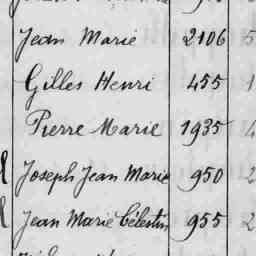 Jean Marie 2106
Gilles Henri 455
Pierre Marie 1935
Joseph Jean Marie 950
Jean Marie Célestin 955